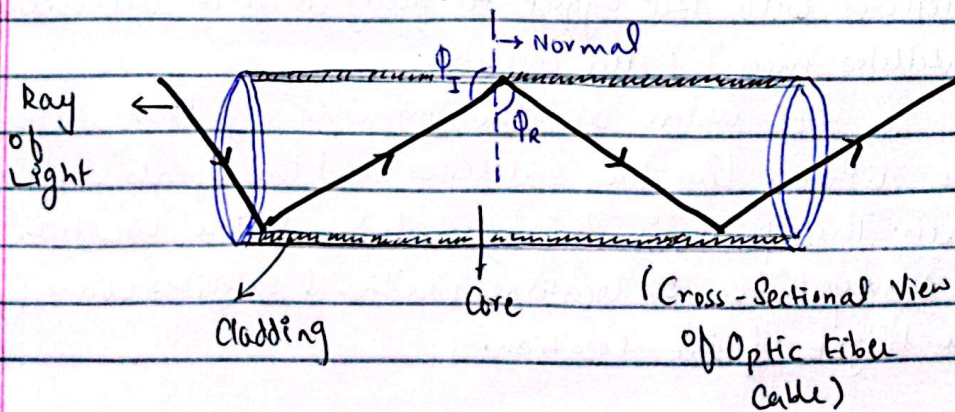 → Normal
φI
φR
Ray
of
Light
Cladding
Core
(Cross-Sectional View
of Optic Fiber
Cable)